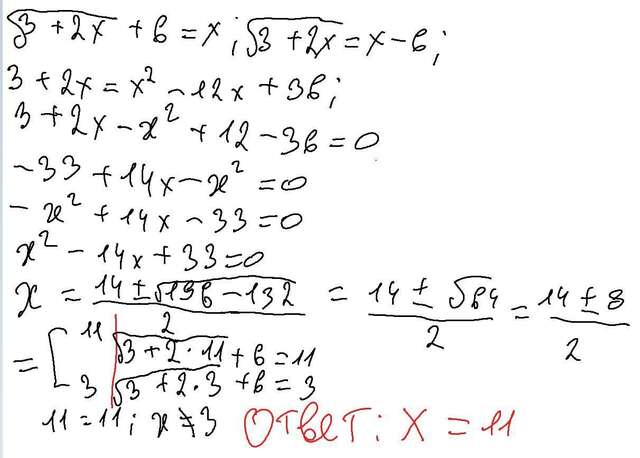 √3 + 2x + 6 = x; √3 + 2x = x - 6;
3 + 2x = x² - 12x + 36;
3 + 2x - x² + 12 - 36 = 0
-33 + 14x - x² = 0
- x² + 14x - 33 = 0
x² - 14x + 33 = 0
x = 14 ± √196 - 132 / 2 = 14 ± √64 / 2 = 14 ± 8 / 2
= [ 11 √3 + 2 · 11 + 6 = 11
3 √3 + 2 · 3 + 6 = 3
11 = 11; x ≠ 3 Ответ: x = 11